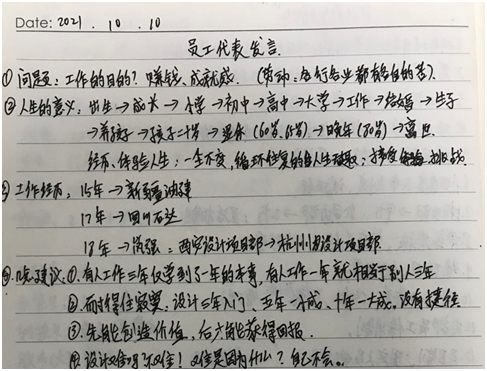 Date: 2021 . 10 . 10
员工代表发言
① 问题: 工作的目的? 赚钱、成就感. (劳动: 各行各业都有各自的苦).
② 人生的意义: 出生 → 成长 → 小学 → 初中 → 高中 → 大学 → 工作 → 结婚 → 生子
→ 养孩子 → 孩子二十岁 → 退休 (60岁, 65岁) → 晚年 (80岁) → 离世
经历、体验人生: 一生不变, 循环往复的 人生 ; 接受 挑战
③ 工作经历: 15年 → 新疆油建
17年 → 四川石达
18年 → : 西安设计项目部 → 杭州 设计项目部
④ 建议: ①. 有人工作三年仅学到了一年的本事, 有人工作一年就相当于别人三年
②. 耐得住寂寞: 设计三年入门、五年一小成、十年一大成, 没有捷径
③. 先能创造价值, 后才能获得回报.
④. 设计难吗? 不难! 难是因为什么? 自己不会。